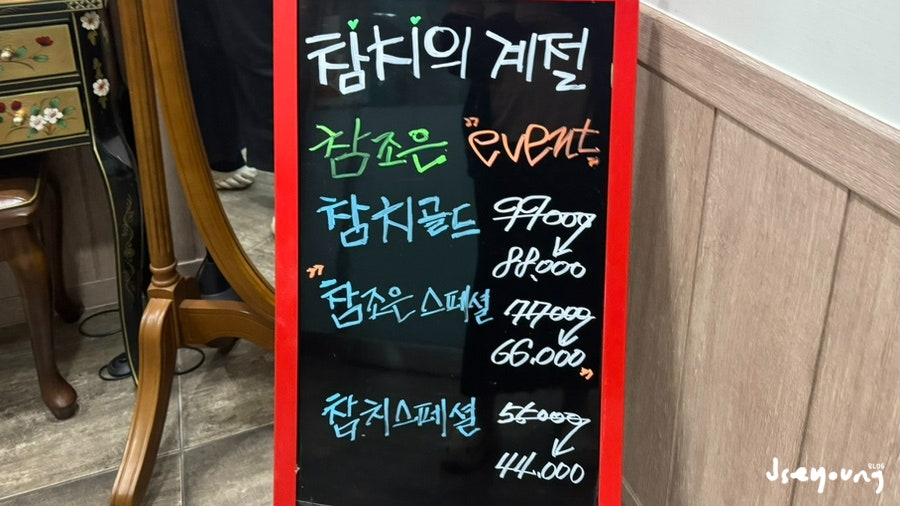 참치의 계절
참조은 "event"
참치골드 99000
88.000
"참조은 스페셜 77000
66.000"
참치스페셜 55000
44.000
Jseyoung BLOG